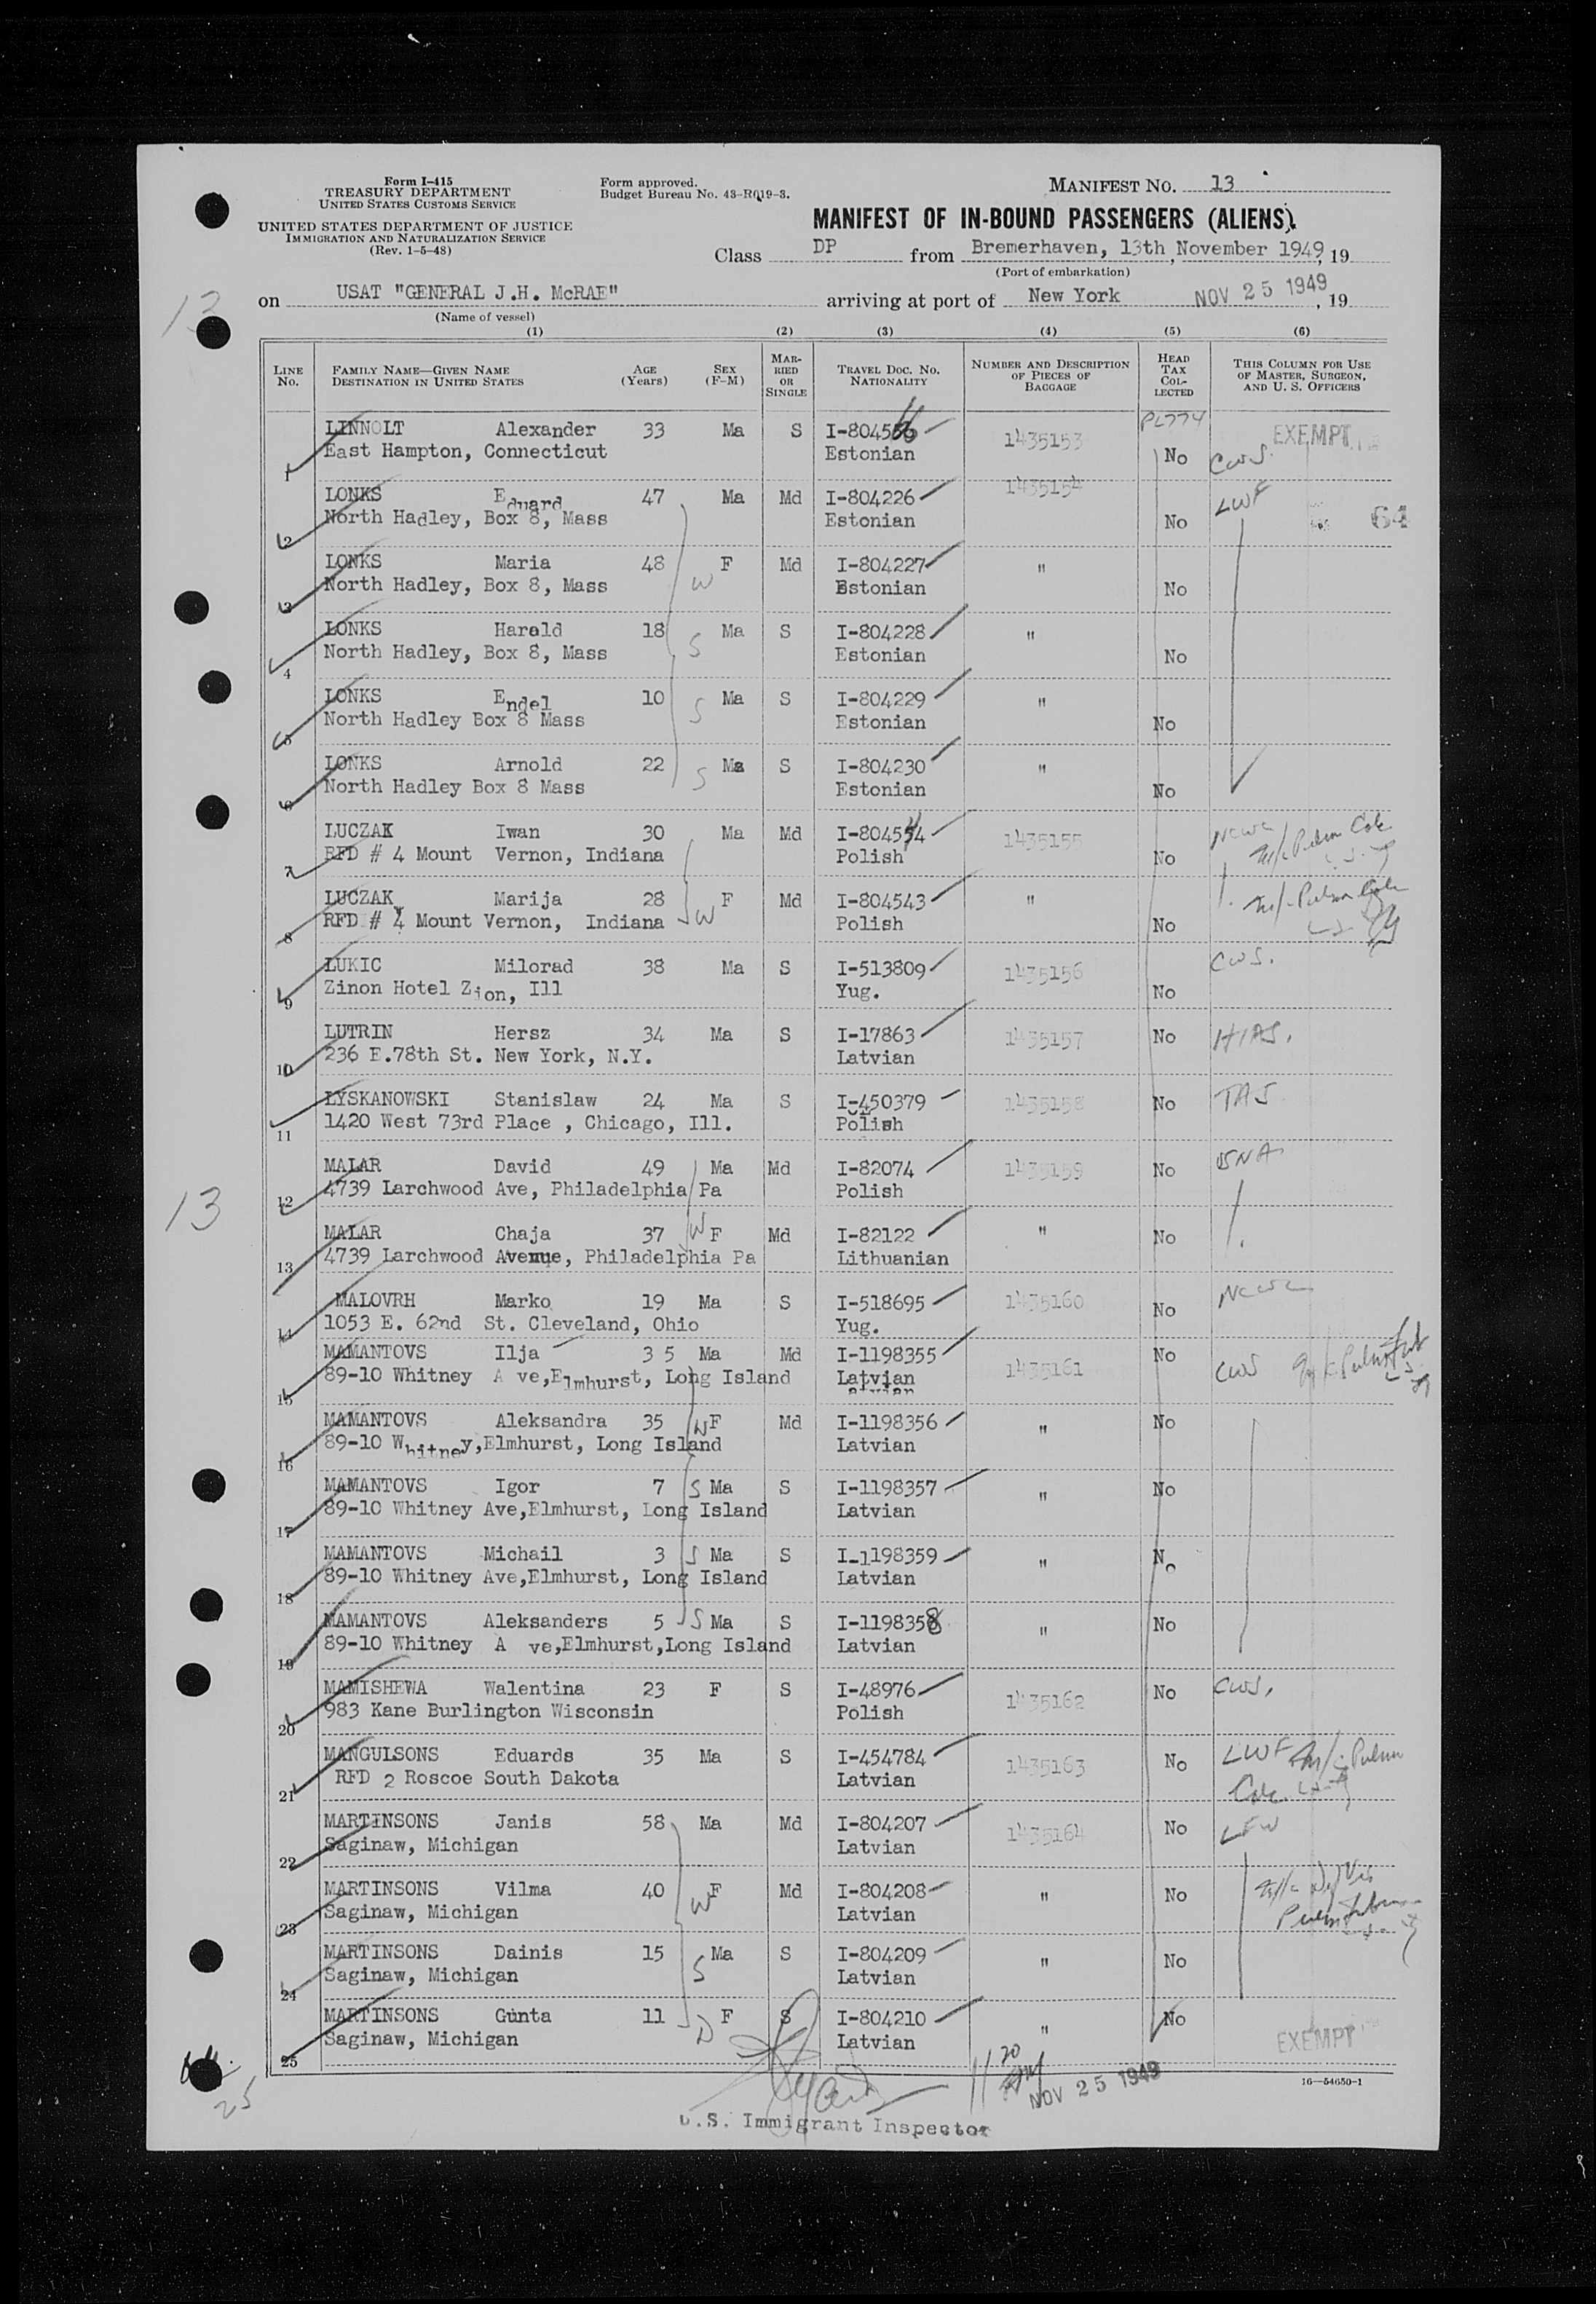 Form I-415
TREASURY DEPARTMENT
UNITED STATES CUSTOMS SERVICE
UNITED STATES DEPARTMENT OF JUSTICE
IMMIGRATION AND NATURALIZATION SERVICE
(Rev. 1-5-48)
Form approved.
Budget Bureau No. 43-R019-3.
MANIFEST NO. 13
MANIFEST OF IN-BOUND PASSENGERS (ALIENS)
Class DP from Bremerhaven, 13th, November 1949, 19
(Port of embarkation)
13
on USAT "GENERAL J.H. McRAE" arriving at port of New York NOV 25 1949, 19
(Name of vessel)
(1) (2) (3) (4) (5) (6)
LINE NO. FAMILY NAME—GIVEN NAME DESTINATION IN UNITED STATES AGE (Years) SEX (F-M) MARRIED OR SINGLE TRAVEL DOC. NO. NATIONALITY NUMBER AND DESCRIPTION OF PIECES OF BAGGAGE HEAD TAX COLLECTED THIS COLUMN FOR USE OF MASTER, SURGEON, AND U. S. OFFICERS
PL774
LINNOLT Alexander 33 Ma S 1435153 EXEMPT
1 East Hampton, Connecticut Estonian No CWS.
LONKS Eduard 47 Ma Md I-804226 1435154 LWF
2 North Hadley, Box 8, Mass Estonian No 64
LONKS Maria 48 F Md I-804227 "
3 North Hadley, Box 8, Mass W Estonian No
LONKS Harald 18 Ma S I-804228 "
4 North Hadley, Box 8, Mass S Estonian No
LONKS Endel 10 S Ma S I-804229 "
5 North Hadley Box 8 Mass Estonian No
LONKS Arnold 22 Ma S I-804230 "
6 North Hadley Box 8 Mass S Estonian No
LUCZAK Iwan 30 Ma Md I-804544 1435155 NCWC
7 RFD # 4 Mount Vernon, Indiana Polish No
LUCZAK Marija 28 F Md I-804543 "
8 RFD # 4 Mount Vernon, Indiana W Polish No
LUKIC Milorad 38 Ma S I-513809 1435156 CWS.
9 Zinon Hotel Zion, Ill Yug. No
LUTRIN Hersz 34 Ma S I-17863 1435157 No HIAS.
10 236 E.78th St. New York, N.Y. Latvian
LYSKANOWSKI Stanislaw 24 Ma S I-450379 1435158 No TAS
11 1420 West 73rd Place , Chicago, Ill. Polish
MALAR David 49 Ma Md I-82074 1435159 No USNA
12 4739 Larchwood Ave, Philadelphia Pa Polish
13
MALAR Chaja 37 W F Md I-82122 " No
13 4739 Larchwood Avenue, Philadelphia Pa Lithuanian
MALOVRH Marko 19 Ma S I-518695 1435160 No NCWC
14 1053 E. 62nd St. Cleveland, Ohio Yug.
MAMANTOVS Ilja 3 5 Ma Md I-1198355 1435161 No CWS
15 89-10 Whitney A ve,Elmhurst, Long Island Latvian
MAMANTOVS Aleksandra 35 W F Md I-1198356 " No
16 89-10 Whitney,Elmhurst, Long Island Latvian
MAMANTOVS Igor 7 S Ma S I-1198357 " No
17 89-10 Whitney Ave,Elmhurst, Long Island Latvian
MAMANTOVS Michail 3 S Ma S I-1198359 " No
18 89-10 Whitney Ave,Elmhurst, Long Island Latvian
MAMANTOVS Aleksanders 5 S Ma S I-1198358 " No
19 89-10 Whitney A ve,Elmhurst,Long Island Latvian
MAMISHEWA Walentina 23 F S I-48976 1435162 No CWS.
20 983 Kane Burlington Wisconsin Polish
MANGULSONS Eduards 35 Ma S I-454784 1435163 No LWF
21 RFD 2 Roscoe South Dakota Latvian
MARTINSONS Janis 58 Ma Md I-804207 1435164 No LFW
22 Saginaw, Michigan Latvian
MARTINSONS Vilma 40 W F Md I-804208 " No
23 Saginaw, Michigan Latvian
MARTINSONS Dainis 15 Ma S I-804209 " No
24 Saginaw, Michigan S Latvian
MARTINSONS Gunta 11 D F S I-804210 " No
25 Saginaw, Michigan Latvian EXEMPT
25
11 20 AM
NOV 25 1949
16—54650-1
U.S. Immigrant Inspector